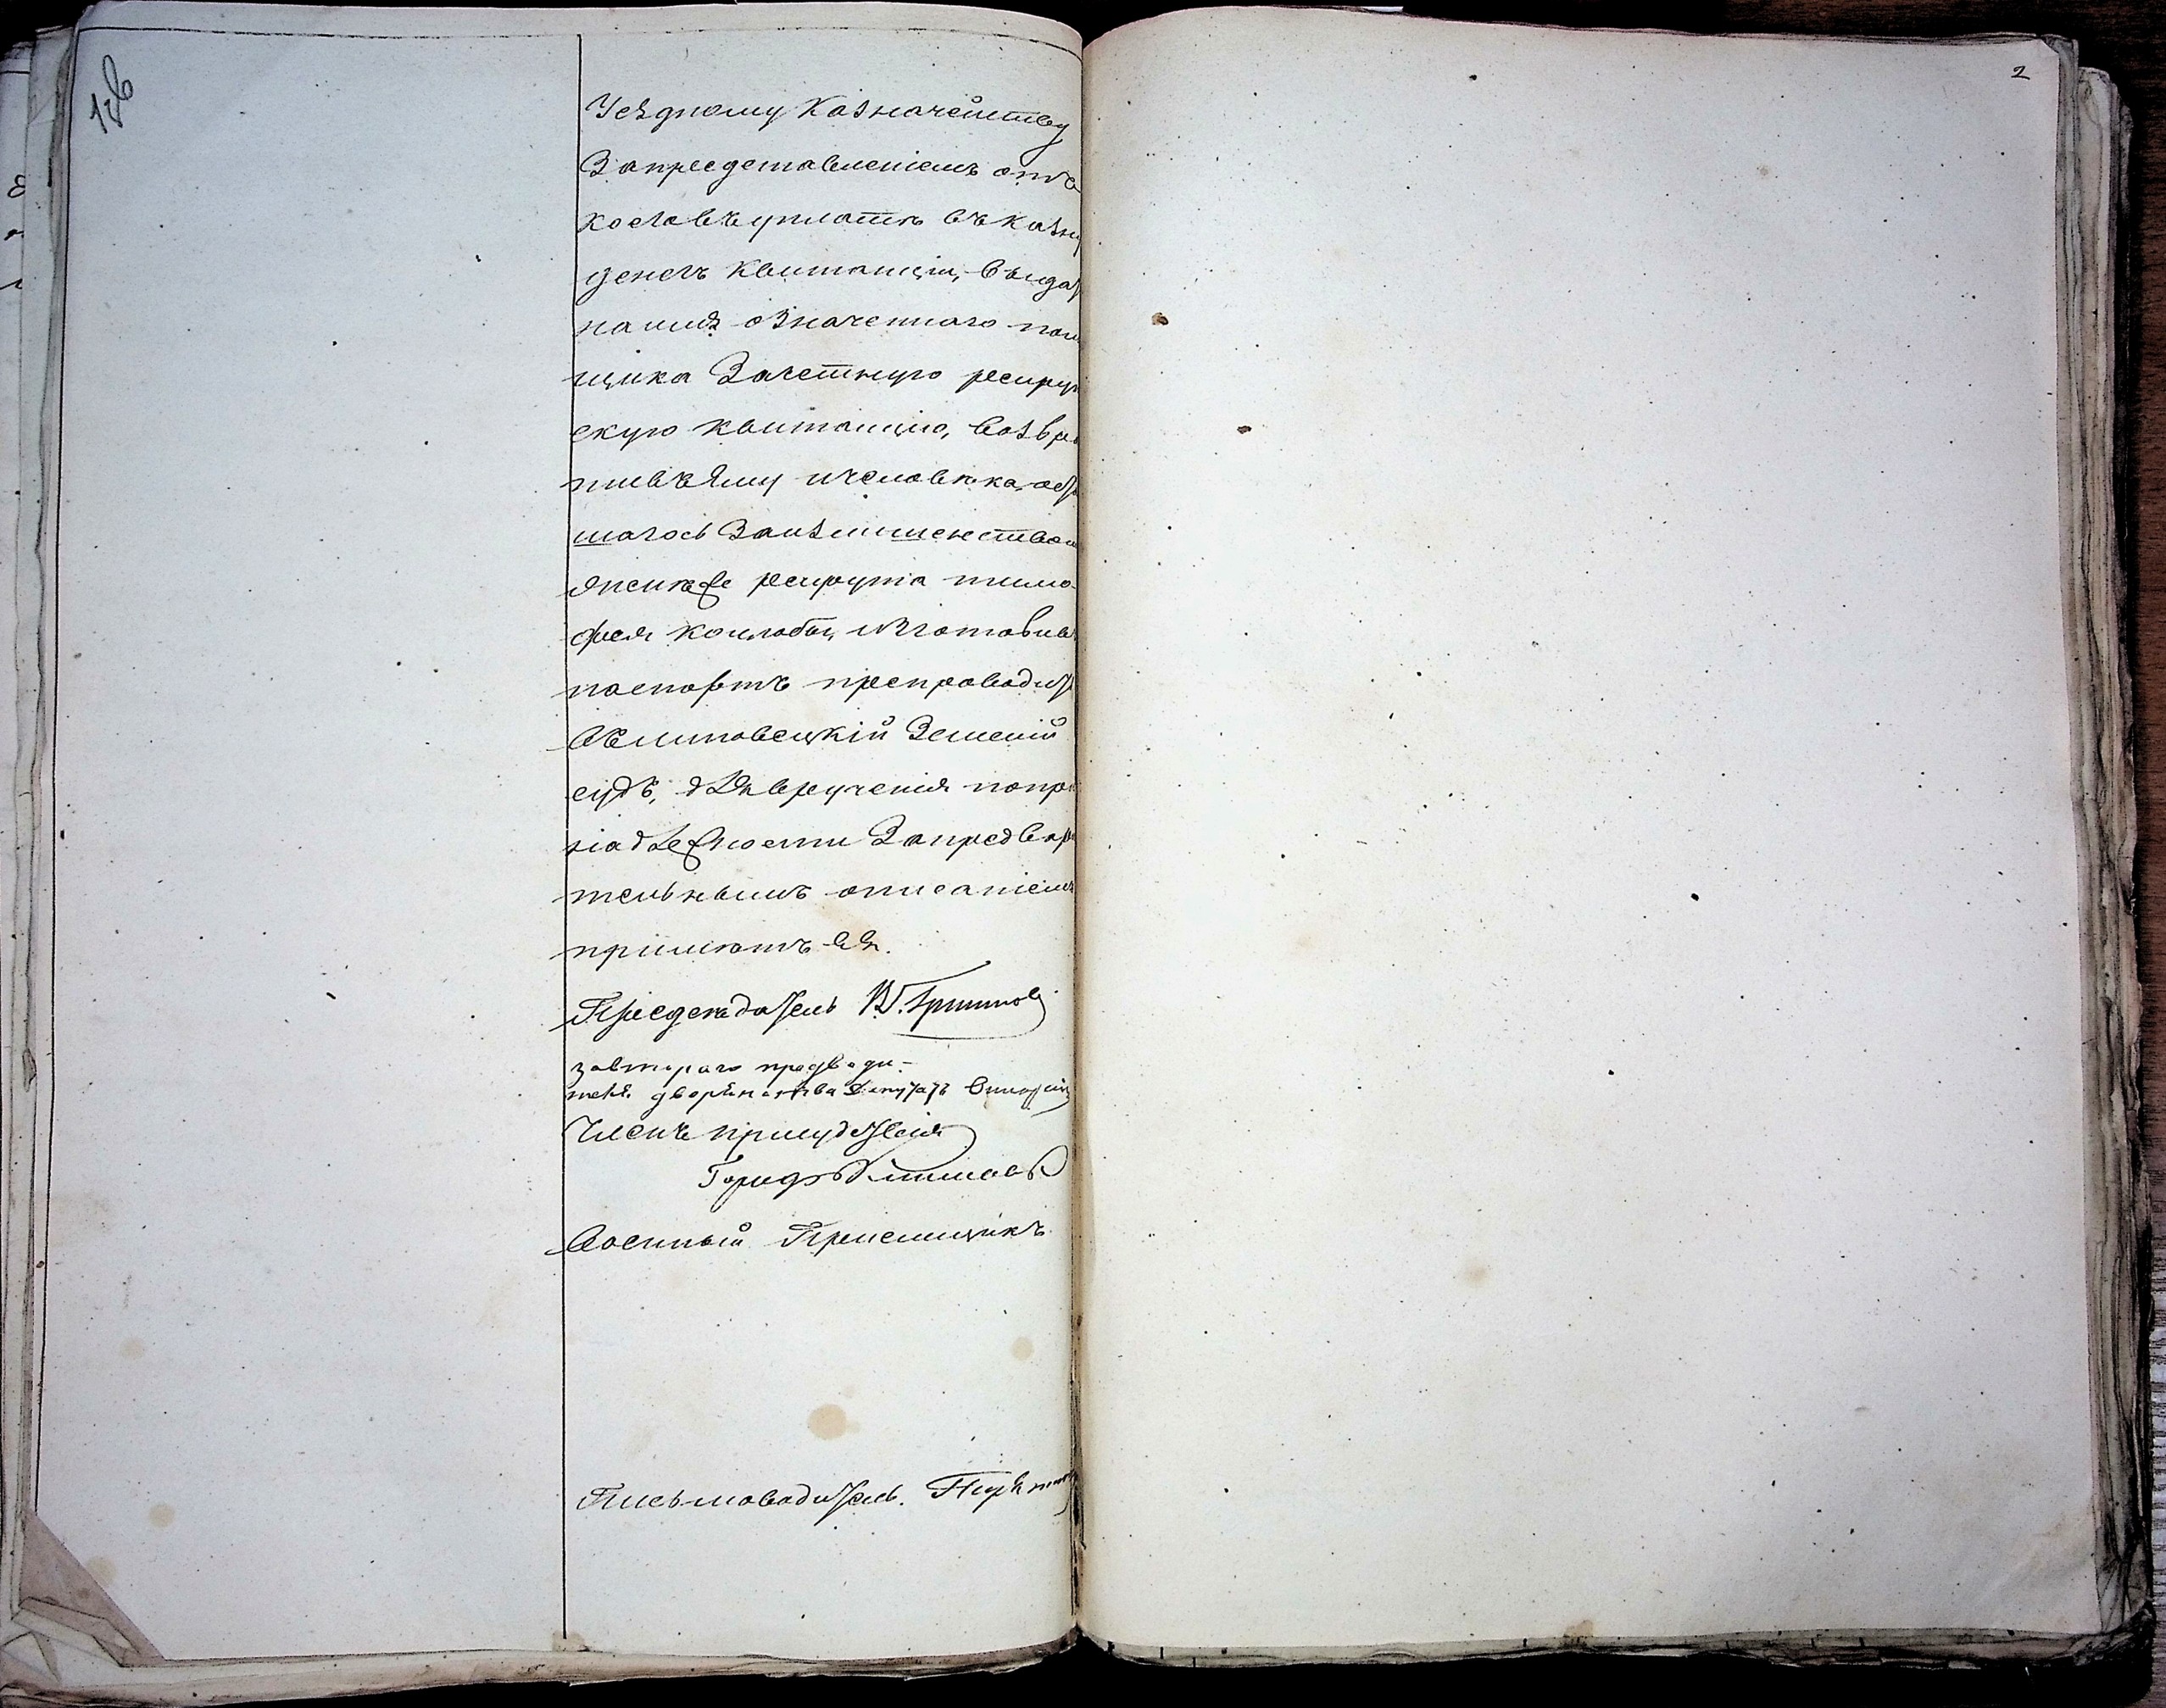 1об
2
Уезному Казначейству
За представлениемъ отъ
кого въ уплатѣ въ казну
денегъ квитанціи, выдат
на имя означеннаго пом
щика Зачетную рекрут
скую квитанцію, возвра
тивъ ему и человѣка, ост
шагось За излишенствомъ
рекрута тимо-
фея изготовив
паспортъ препроводит
въ Липовецкій Земскій
судъ, для врученія попри
надлежности За предвар
тельнымъ описаніемъ
примѣтъ его.
Предсѣдатель
за втораго предводи-
теля дворянства Депутатъ
Членъ присудствія
Военный Пріемщикъ
Письмоводитель.